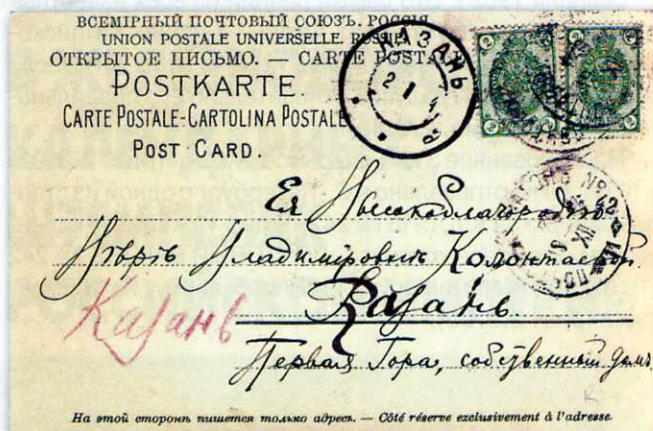 ВСЕМІРНЫЙ ПОЧТОВЫЙ СОЮЗЪ. РОССІЯ
UNION POSTALE UNIVERSELLE. RUSSIE
ОТКРЫТОЕ ПИСЬМО. — CARTE POSTALE
POSTKARTE.
CARTE POSTALE-CARTOLINA POSTALE
POST CARD.
КАЗАНЬ
2 1
2 2 2 2
Ея Высокоблагородію
Вѣрѣ Владиміровнѣ Колонтаевой
Казань.
Казань
Первая Гора, собственный домъ
На этой сторонѣ пишется только адресъ. — Côté réserve exclusivement à l'adresse.